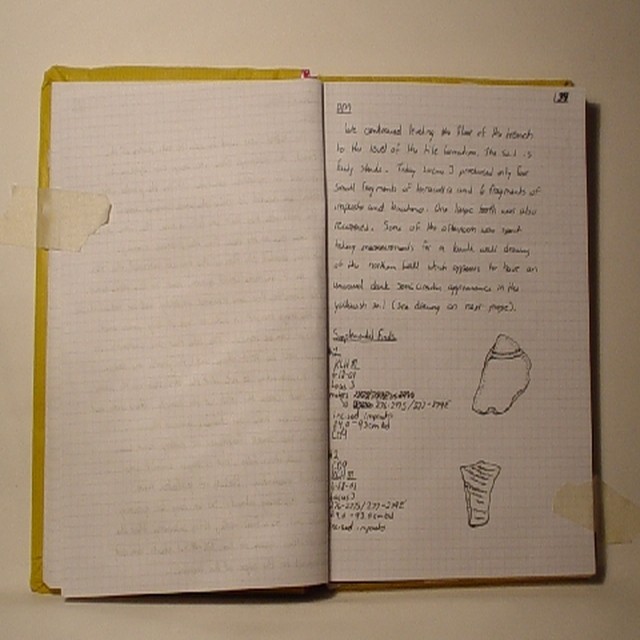 39
PM
We continued leveling the floor of the trench
to the level of the tile formation. The soil is
fairly sandy. Today Locus 3 produced only four
small fragments of terracotta and 6 fragments of
impasto and bucchero. One large tooth was also
recovered. Some of the afternoon was spent
taking measurements for a baulk wall drawing
of the northern baulk which appears to have an
unusual dark semicircular appearance in the
yellowish soil (see drawing on next page).
Supplemental Finds
#1
Locus 3
276-277S/277-279E
incised impasto
#2
Locus 3
276-277S/277-279E
incised impasto